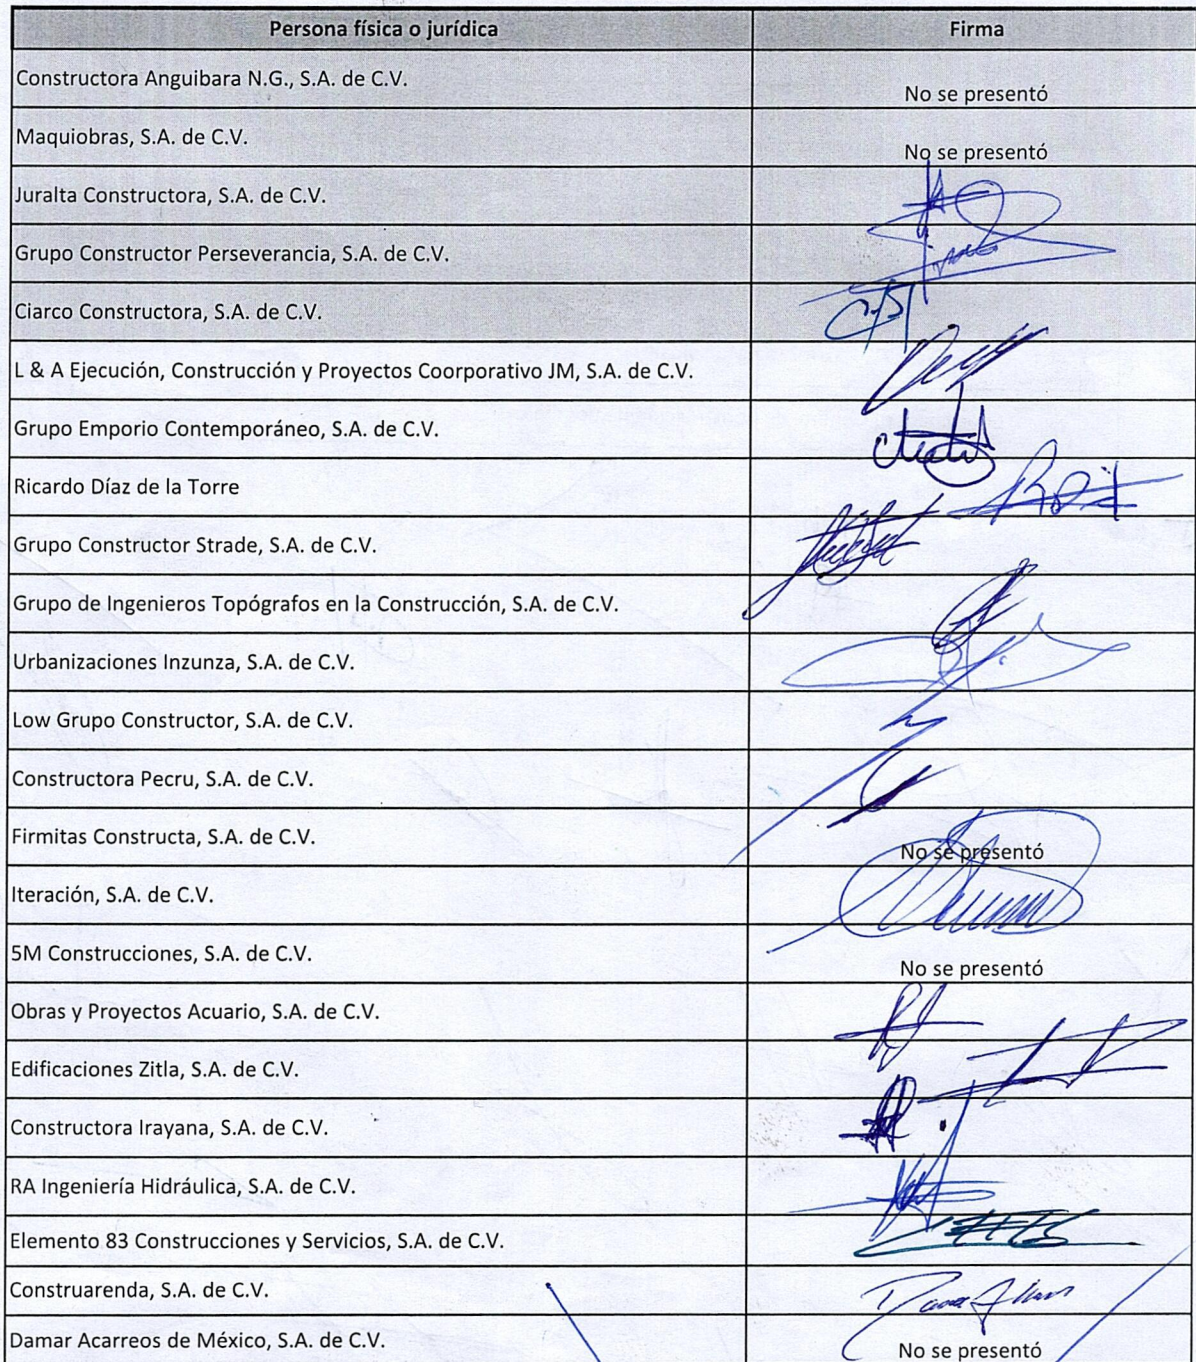 Persona física o jurídica Firma
Constructora Anguibara N.G., S.A. de C.V. No se presentó
Maquiobras, S.A. de C.V. No se presentó
Juralta Constructora, S.A. de C.V.
Grupo Constructor Perseverancia, S.A. de C.V.
Ciarco Constructora, S.A. de C.V.
L & A Ejecución, Construcción y Proyectos Coorporativo JM, S.A. de C.V.
Grupo Emporio Contemporáneo, S.A. de C.V.
Ricardo Díaz de la Torre
Grupo Constructor Strade, S.A. de C.V.
Grupo de Ingenieros Topógrafos en la Construcción, S.A. de C.V.
Urbanizaciones Inzunza, S.A. de C.V.
Low Grupo Constructor, S.A. de C.V.
Constructora Pecru, S.A. de C.V.
Firmitas Constructa, S.A. de C.V. No se presentó
Iteración, S.A. de C.V.
5M Construcciones, S.A. de C.V. No se presentó
Obras y Proyectos Acuario, S.A. de C.V.
Edificaciones Zitla, S.A. de C.V.
Constructora Irayana, S.A. de C.V.
RA Ingeniería Hidráulica, S.A. de C.V.
Elemento 83 Construcciones y Servicios, S.A. de C.V.
Construarenda, S.A. de C.V.
Damar Acarreos de México, S.A. de C.V. No se presentó